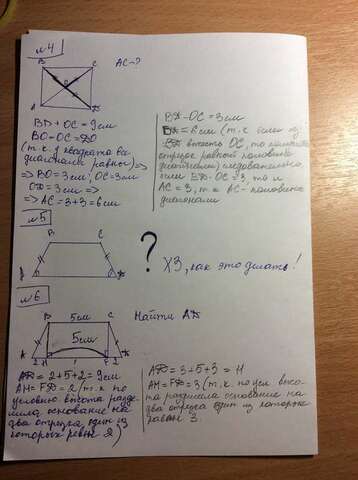 №4
B C
AC-?
O
A D
BD + OC = 9см
BO = OC = DO
(т.к. у квадрата все
диагонали равны) ⇒
⇒ BO = 3см; OC = 3см
OD = 3см ⇒
⇒ AC = 3+3 = 6см
BD - OC = 3см
BD = 6см (т.к. если из
BD вычесть OC, то
отрезок равный половине
диагонали) следовательно
если BD - OC = 3, то и
AC = 3, т.к AC - половина
диагонали
№5
B C
A D
?
ХЗ, как это делать!
№6
B 5см C
5см
A 2 H F 2 D
Найти AD
AD = 2+5+2 = 9см
AH = FD = 2 (т.к. по
условию высота разде-
лила основание на
два отрезка один из
которых равен 2)
AD = 3+5+3 = 11
AH = FD = 3 (т.к. по усл. высо-
та разделила основание на
два отрезка один из которых
равен 3.